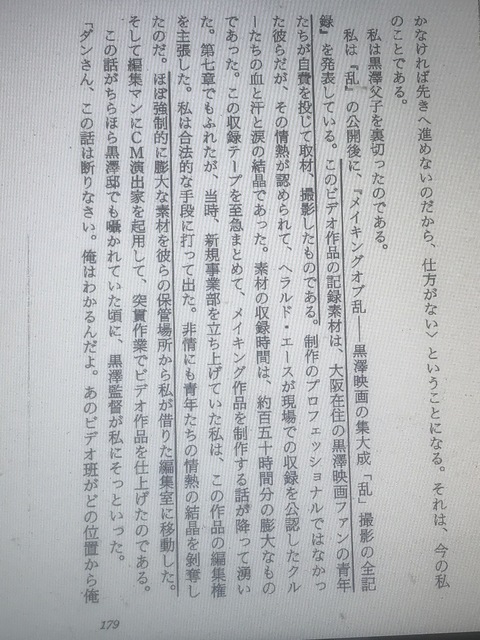 かなければ先きへ進めないのだから、仕方がない〉ということになる。それは、今の私
のことである。
私は黒澤父子を裏切ったのである。
私は『乱』の公開後に、『メイキングオブ乱――黒澤映画の集大成「乱」撮影の全記
録』を発表している。このビデオ作品の記録素材は、大阪在住の黒澤映画ファンの青年
たちが自費を投じて取材、撮影したものである。制作のプロフェッショナルではなかっ
た彼らだが、その情熱が認められて、ヘラルド・エースが現場での収録を公認したクル
ーたちの血と汗と涙の結晶であった。素材の収録時間は、約百五十時間分の膨大なもの
であった。この収録テープを至急まとめて、メイキング作品を制作する話が降って湧い
た。第七章でもふれたが、当時、新規事業部を立ち上げていた私は、この作品の編集権
を主張した。私は合法的な手段に打って出た。非情にも青年たちの情熱の結晶を剝奪し
たのだ。ほぼ強制的に膨大な素材を彼らの保管場所から私が借りた編集室に移動した。
そして編集マンにCM演出家を起用して、突貫作業でビデオ作品を仕上げたのである。
この話がちらほら黒澤邸でも囁かれていた頃に、黒澤監督が私にそっといった。
「ダンさん、この話は断りなさい。俺はわかるんだよ。あのビデオ班がどの位置から俺
179